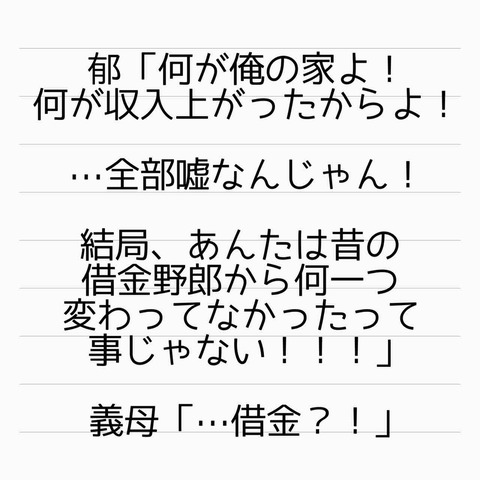 郁「何が俺の家よ！
何が収入上がったからよ！
…全部嘘なんじゃん！
結局、あんたは昔の
借金野郎から何一つ
変わってなかったって
事じゃない！！！」
義母「…借金？！」